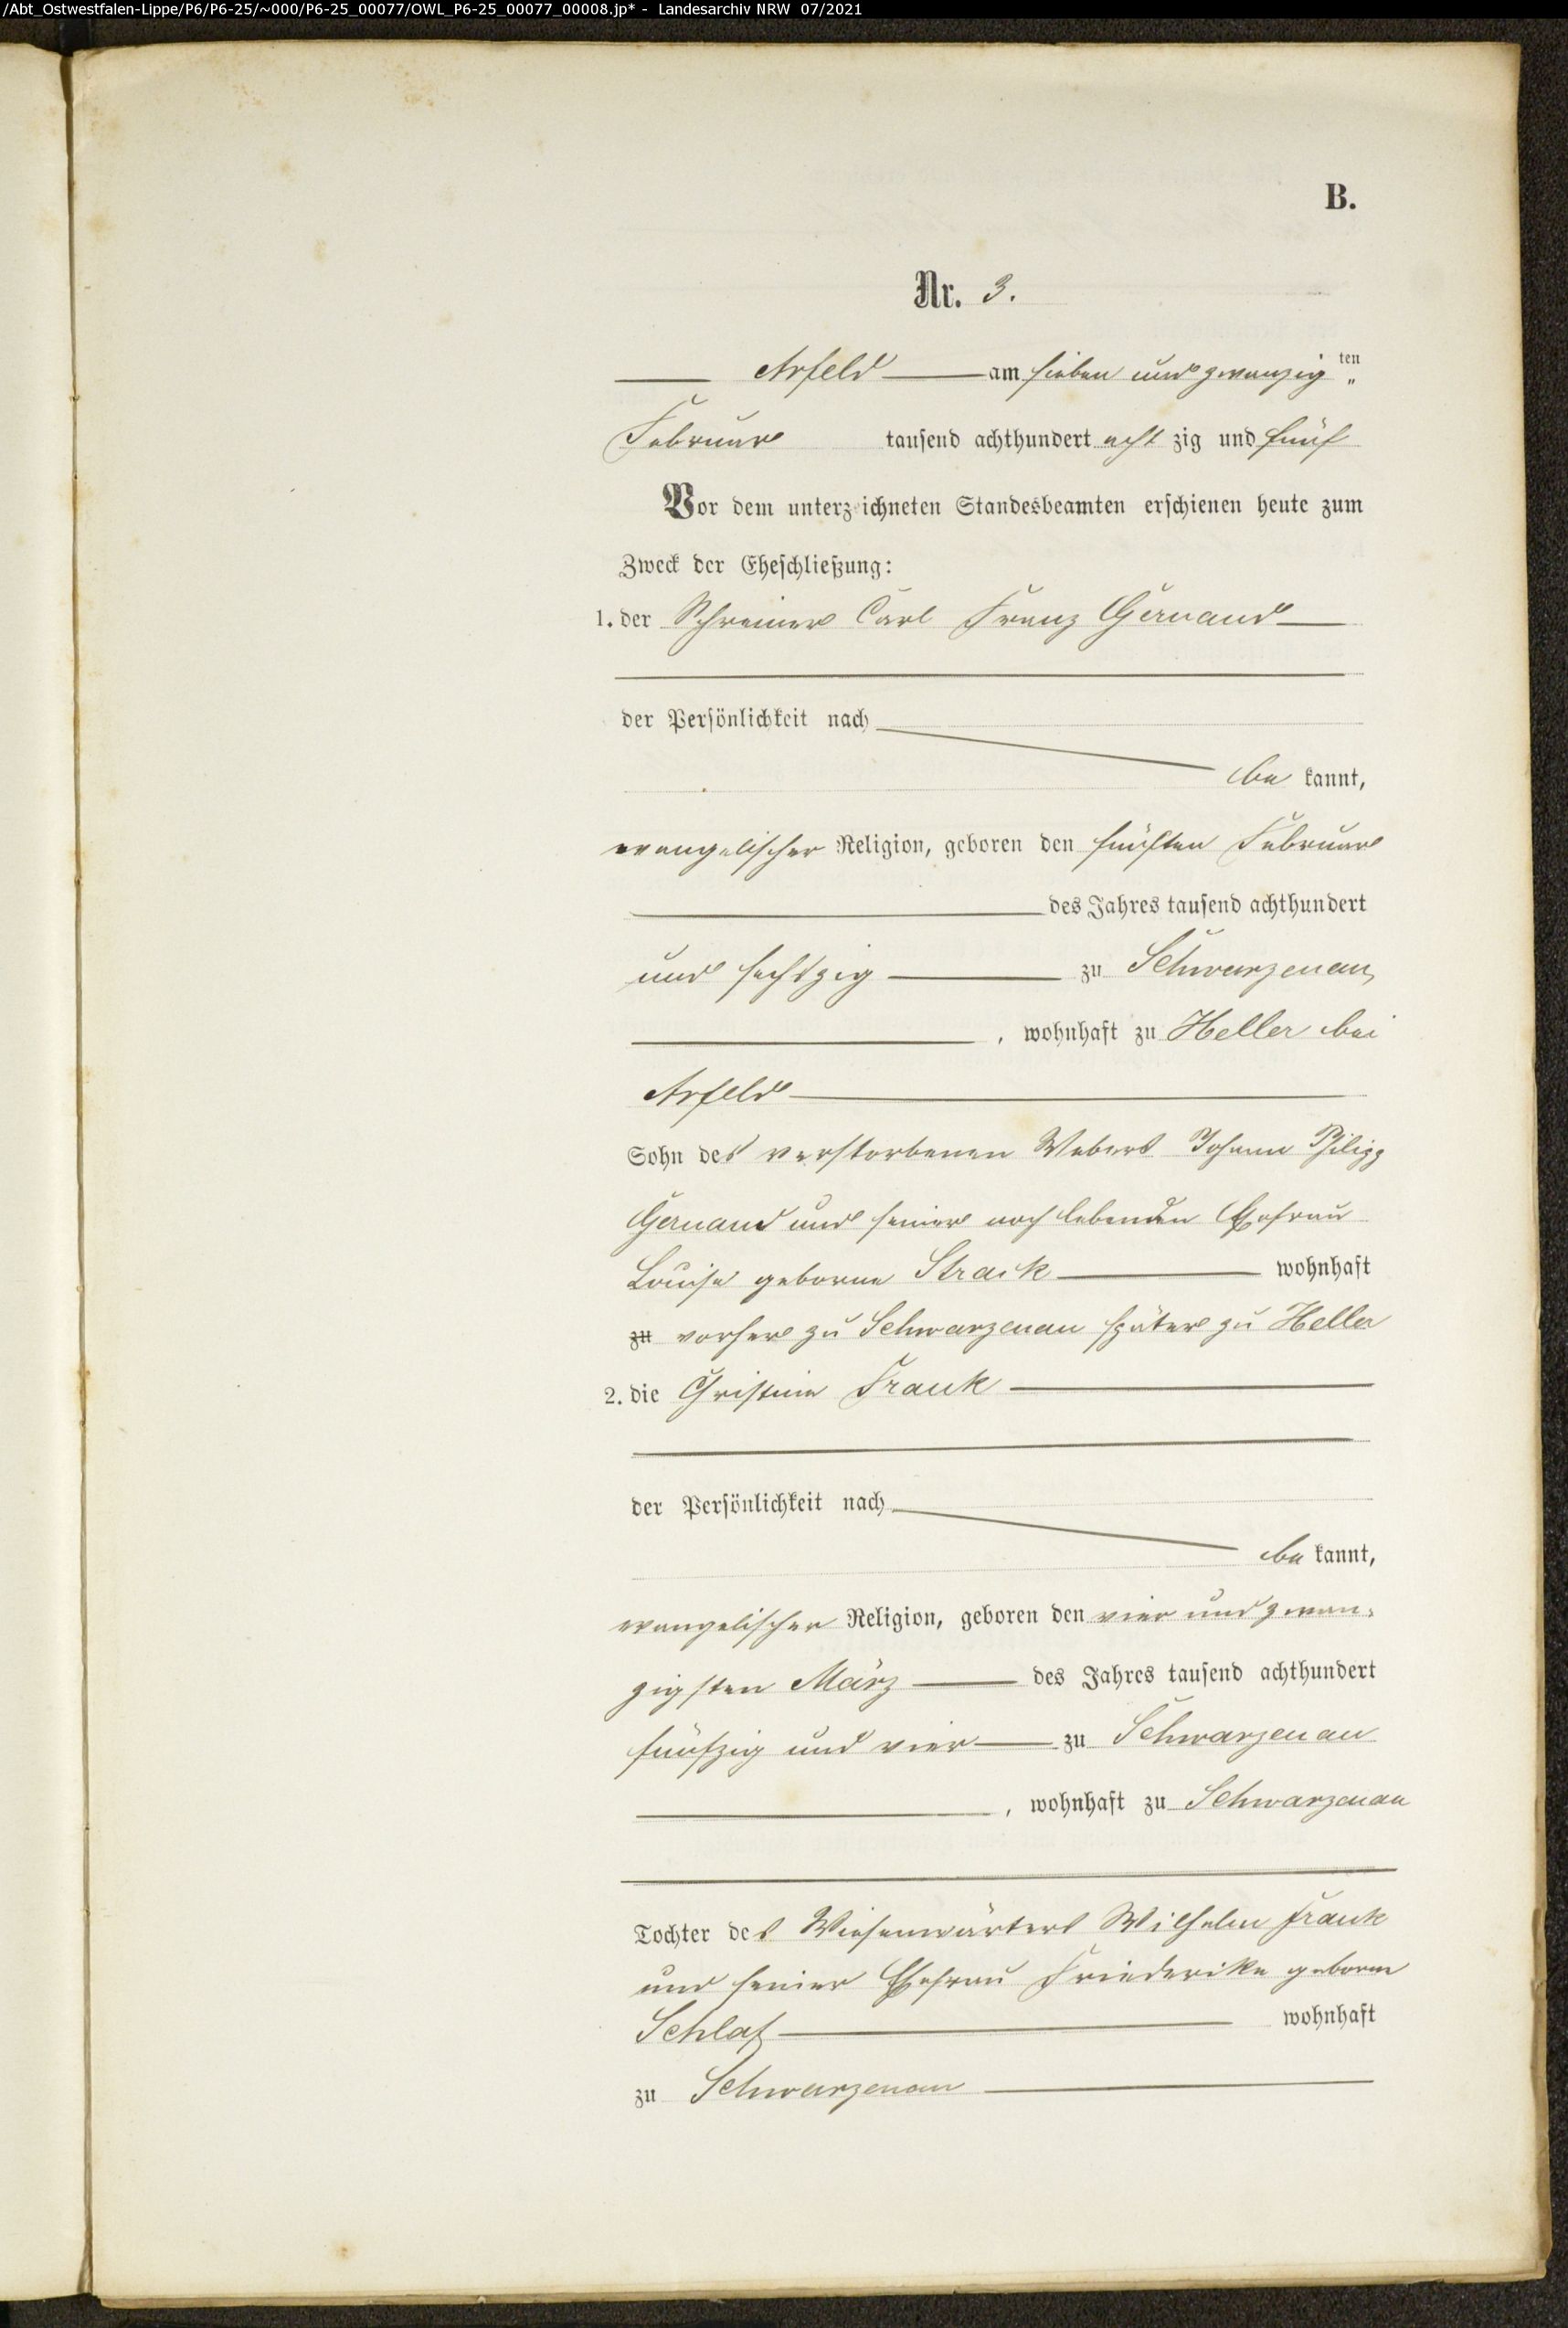 /Abt_Ostwestfalen-Lippe/P6/P6-25/~000/P6-25_00077/OWL_P6-25_00077_00008.jp* - Landesarchiv NRW 07/2021
B.
Nr. 3.
Arfeld am sieben und zwanzig ten „
Februar tausend achthundert acht zig und fünf
Vor dem unterzeichneten Standesbeamten erschienen heute zum
Zweck der Eheschließung:
1. der Schreiner Carl Franz Gernand
der Persönlichkeit nach
be kannt,
evangelischer Religion, geboren den fünften Februar
des Jahres tausend achthundert
und sechszig zu Schwarzenau,
, wohnhaft zu Heller bei
Arfeld
Sohn des verstorbenen Webers Johann Philipp
Gernand und seiner noch lebenden Ehefrau
Louise geborne Strack wohnhaft
zu vorher zu Schwarzenau später zu Heller
2. die Christine Frank
der Persönlichkeit nach
be kannt,
evangelischer Religion, geboren den vier und zwan-
zigsten März des Jahres tausend achthundert
fünfzig und vier zu Schwarzenau
, wohnhaft zu Schwarzenau
Tochter des Wiesenwärters Wilhelm Frank
und seiner Ehefrau Friederike geborne
Schlaf wohnhaft
zu Schwarzenau